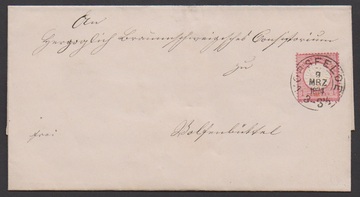 An
Herzoglich Braunschweigisches Consistorium
zu
frei Wolfenbüttel
VORSFELDE
9
MRZ